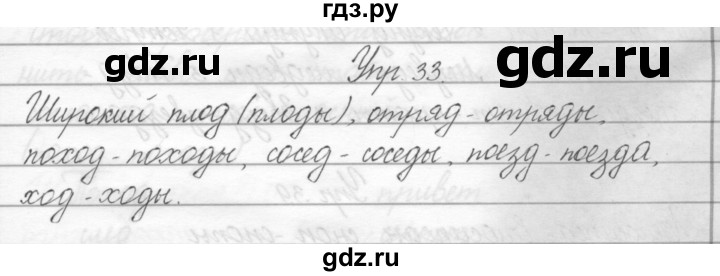 гдз.ру
gdz.ru gdz.ru
Упр. 33.
Широкий плод (плоды), отряд - отряды,
поход - походы, сосед - соседы, поезд - поезда,
ход - ходы.
gdz.ru